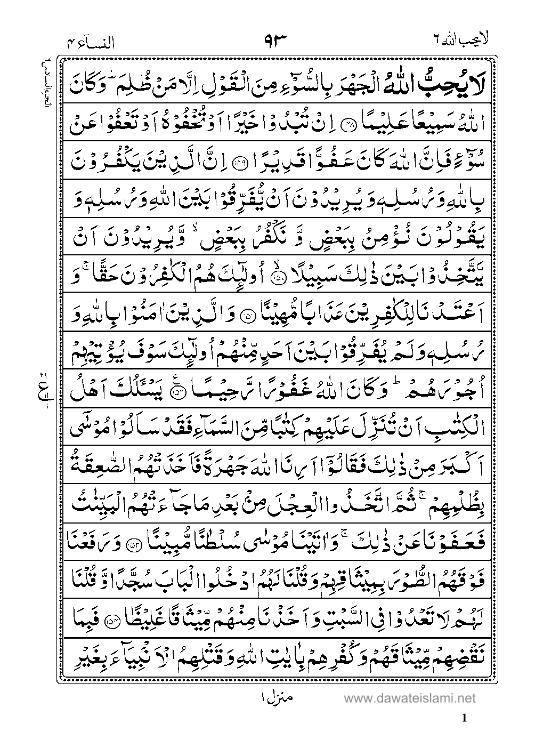 لا یحب اللہ ٦ ٩٣ النسآء ٤
لَا یُحِبُّ اللّٰهُ الْجَهْرَ بِالسُّوْٓءِ مِنَ الْقَوْلِ اِلَّا مَنْ ظُلِمَ ؕ وَكَانَ
اللّٰهُ سَمِیْعًا عَلِیْمًا ﴿۱۴۸﴾ اِنْ تُبْدُوْا خَیْرًا اَوْ تُخْفُوْهُ اَوْ تَعْفُوْا عَنْ
سُوْٓءٍ فَاِنَّ اللّٰهَ كَانَ عَفُوًّا قَدِیْرًا ﴿۱۴۹﴾ اِنَّ الَّذِیْنَ یَكْفُرُوْنَ
بِاللّٰهِ وَ رُسُلِهٖ وَ یُرِیْدُوْنَ اَنْ یُّفَرِّقُوْا بَیْنَ اللّٰهِ وَ رُسُلِهٖ وَ
یَقُوْلُوْنَ نُؤْمِنُ بِبَعْضٍ وَّ نَكْفُرُ بِبَعْضٍ ۙ وَّ یُرِیْدُوْنَ اَنْ
یَّتَّخِذُوْا بَیْنَ ذٰلِكَ سَبِیْلًا ﴿۱۵۰﴾ۙ اُولٰٓىِٕكَ هُمُ الْكٰفِرُوْنَ حَقًّا ۚ وَ
اَعْتَدْنَا لِلْكٰفِرِیْنَ عَذَابًا مُّهِیْنًا ﴿۱۵۱﴾ وَ الَّذِیْنَ اٰمَنُوْا بِاللّٰهِ وَ
رُسُلِهٖ وَ لَمْ یُفَرِّقُوْا بَیْنَ اَحَدٍ مِّنْهُمْ اُولٰٓىِٕكَ سَوْفَ یُؤْتِیْهِمْ
اُجُوْرَهُمْ ؕ وَ كَانَ اللّٰهُ غَفُوْرًا رَّحِیْمًا ﴿۱۵۲﴾ یَسْـَٔلُكَ اَهْلُ
الْكِتٰبِ اَنْ تُنَزِّلَ عَلَیْهِمْ كِتٰبًا مِّنَ السَّمَآءِ فَقَدْ سَاَلُوْا مُوْسٰۤى
اَكْبَرَ مِنْ ذٰلِكَ فَقَالُوْۤا اَرِنَا اللّٰهَ جَهْرَةً فَاَخَذَتْهُمُ الصّٰعِقَةُ
بِظُلْمِهِمْ ۚ ثُمَّ اتَّخَذُوا الْعِجْلَ مِنْۢ بَعْدِ مَا جَآءَتْهُمُ الْبَیِّنٰتُ
فَعَفَوْنَا عَنْ ذٰلِكَ ۚ وَ اٰتَیْنَا مُوْسٰى سُلْطٰنًا مُّبِیْنًا ﴿۱۵۳﴾ وَ رَفَعْنَا
فَوْقَهُمُ الطُّوْرَ بِمِیْثَاقِهِمْ وَ قُلْنَا لَهُمُ ادْخُلُوا الْبَابَ سُجَّدًا وَّ قُلْنَا
لَهُمْ لَا تَعْدُوْا فِی السَّبْتِ وَ اَخَذْنَا مِنْهُمْ مِّیْثَاقًا غَلِیْظًا ﴿۱۵۴﴾ فَبِمَا
نَقْضِهِمْ مِّیْثَاقَهُمْ وَ كُفْرِهِمْ بِاٰیٰتِ اللّٰهِ وَ قَتْلِهِمُ الْاَنْۢبِیَآءَ بِغَیْرِ
منزل ۱
www.dawateislami.net
1